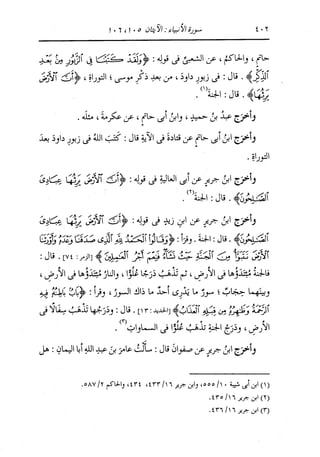 ٤٠٢ سورة الأنبياء : الآيتان ١٠٥، ١٠٦
حاتم، والحاكم، عن الشعبى فى قوله : ﴿ولقد كتبنا فى الزبور من بعد
الذكر﴾. قال : فى زبور داود، من بعد ذكر موسى ؛ التوراة، ﴿أن الأرض
يرثها﴾. قال : الجنة(١).
وأخرج عبد بن حميد، وابن أبى حاتم، عن عكرمة، مثله.
وأخرج ابن أبى حاتم عن قتادة فى الآية قال : كتب الله فى زبور داود بعد
التوراة.
وأخرج ابن جرير عن أبى العالية فى قوله : ﴿أن الأرض يرثها عبادى
الصالحون﴾. قال : الجنة(٢).
وأخرج ابن جرير عن ابن زيد فى قوله : ﴿أن الأرض يرثها عبادى
الصالحون﴾. قال : الجنة. وقرأ : ﴿وقالوا الحمد لله الذى صدقنا وعده وأورثنا
الأرض نتبوأ من الجنة حيث نشاء فنعم أجر العاملين﴾ [الزمر : ٧٤]. قال :
فالجنة مبتدؤها فى الأرض، ثم تذهب درجا علوا، والنار مبتدؤها فى الأرض،
وبينهما حجاب ؛ سور ما يدرى أحد ما ذاك السور، وقرأ : ﴿باب باطنه فيه
الرحمة وظاهره من قبله العذاب﴾ [الحديد : ١٣]. قال : ودرجها تذهب سفالا فى
الأرض، ودرج الجنة تذهب علوا فى السماوات(٣).
وأخرج ابن جرير عن صفوان قال : سألت عامر بن عبد الله أبا اليمان : هل
(١) ابن أبى شيبة ١٠/ ٥٥٥، وابن جرير ١٦/ ٤٣٣، ٤٣٤، والحاكم ٢/ ٥٨٧.
(٢) ابن جرير ١٦/ ٤٣٥.
(٣) ابن جرير ١٦/ ٤٣٦.